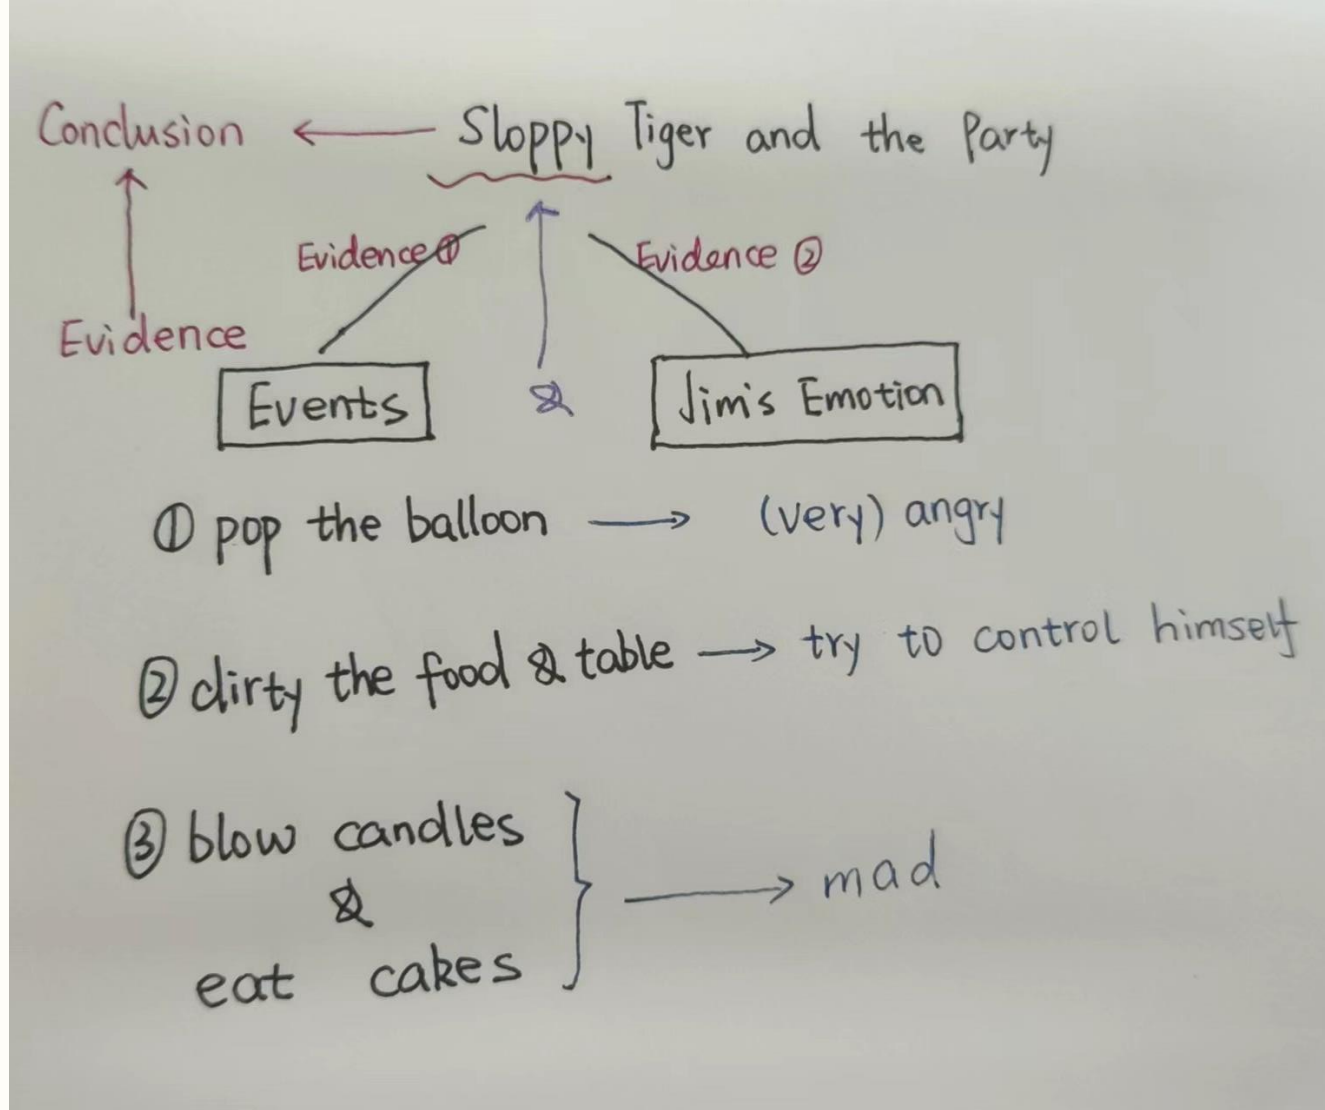 Conclusion ← Sloppy Tiger and the Party
Evidence ① Evidence ②
Evidence
Events & Jim's Emotion
① pop the balloon → (very) angry
② dirty the food & table → try to control himself
③ blow candles
&
eat cakes
→ mad